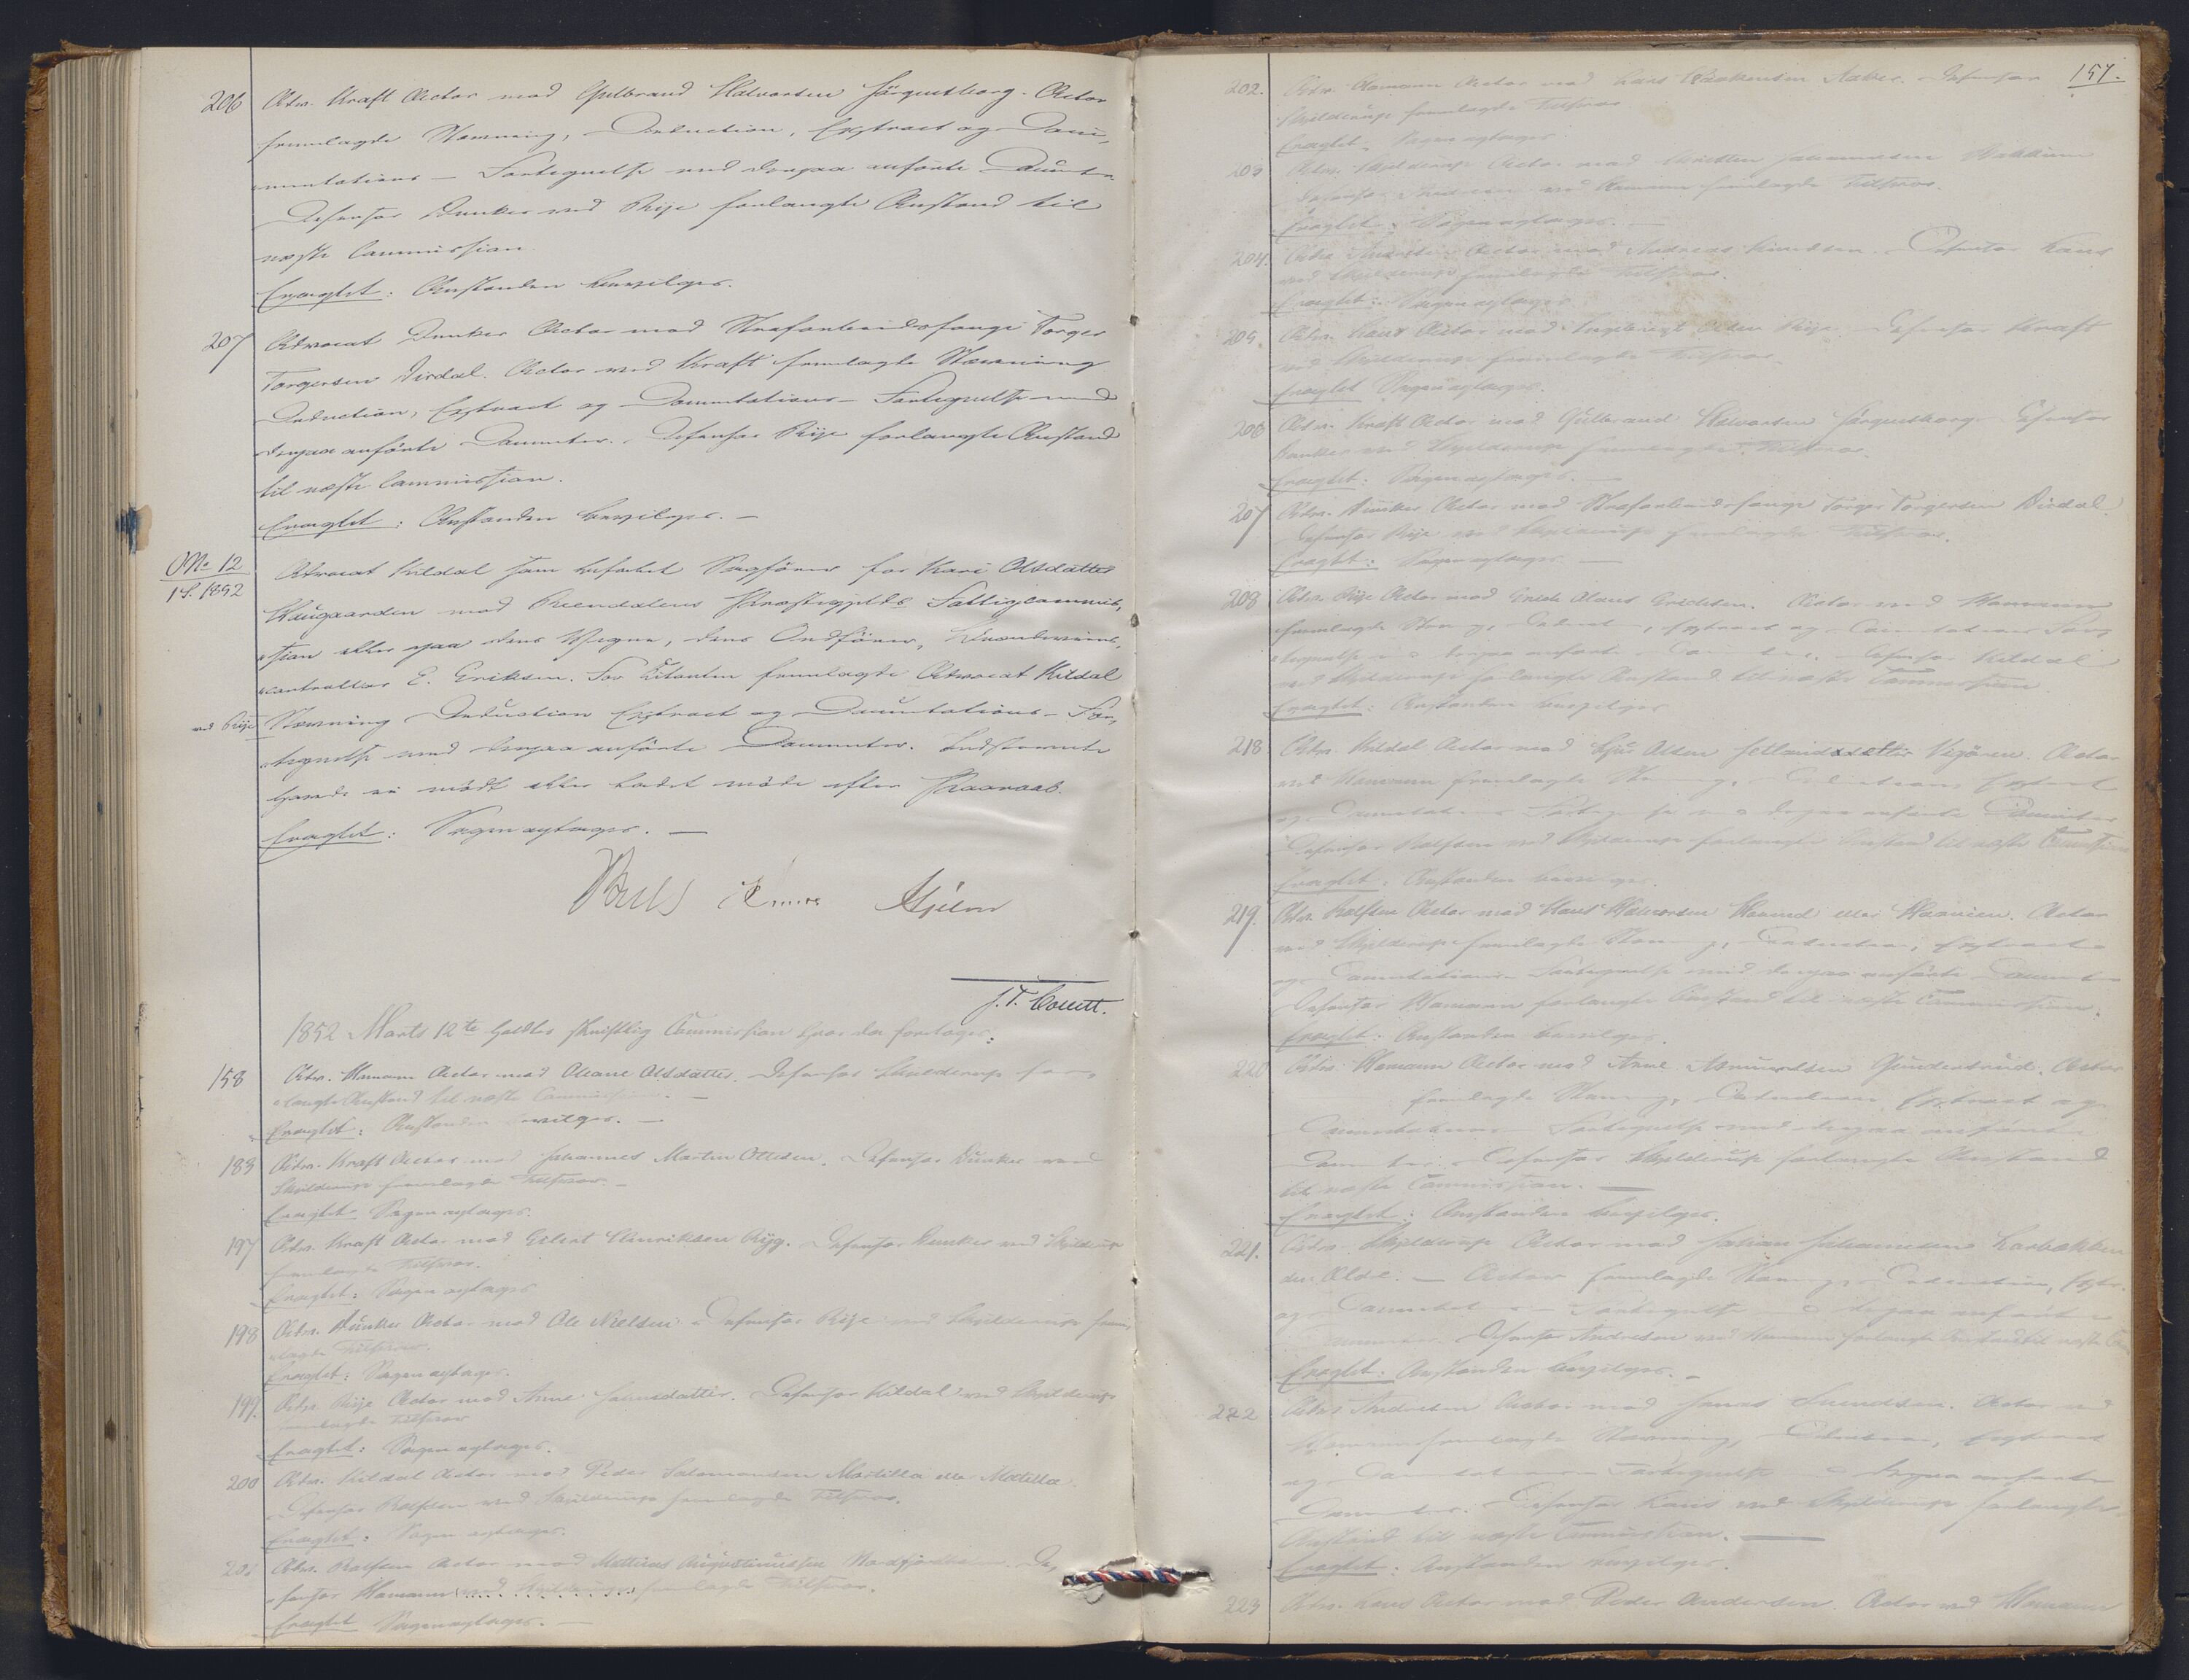 206 Adv. Kraft Actor mod Gulbrand Halvorsen Hörgustborg. Actor
fremlagde Stævning, Deduction, Extract og Docu-
mentations-Fortegnelse med derpaa anførte Documenter.
Defensor Dunker ved Rije forlangte Anstand til
næste Commission.
Eragtet: Anstanden bevilges.
207 Advocat Dunker Actor mod Strafarbeidsfange Torger
Torgersen Dirdal. Actor ved Kraft fremlagde Stævning
Deduction, Extract og Documentations-Fortegnelse med
derpaa anførte Documenter. Defensor Rije forlangte Anstand
til næste Commission.
Eragtet: Anstanden bevilges. —
No 12
1 S. 1852
Advocat Kildal som befalet Sagfører for Kari Olsdatter
Haugaarden mod Reendalens Præstegjelds Fattigcommis-
sion eller paa dens Vegne, dens Ordfører,
controlleur E. Eriksen. For Citantin fremlagde Advocat Kildal
ved Rije Stævning Deduction Extract og Documentations-For-
tegnelse med derpaa anførte Documenter. Indstevnte
havde ei mødt eller ladet møde efter Paaraab.
Eragtet: Sagen optages. —
J. T. Collett.
1852 Marts 12te holdtes skriftlig Commission hvor da foretoges:
158 Adv. Hamann Actor mod Oleane Olsdatter. Defensor Skjelderup for-
langte Anstand til næste Commission. —
Eragtet: Anstanden bevilges. —
183 Adv. Kraft Actor mod Johannes Martin Ottesen. Defensor Dunker ved
Skjelderup fremlagde Tilsvar. —
Eragtet Sagen optages.
197 Adv. Kraft Actor mod Eilert Henriksen Ryg. Defensor Dunker ved Skjelderup
fremlagde Tilsvar.
Eragtet: Sagen optages
198 Adv. Dunker Actor mod Ole Nielsen. Defensor Rije ved Skjelderup frem-
lagde Tilsvar.
Eragtet: Sagen optages.
199. Adv. Rije Actor mod Anne Johnsdatter. Defensor Kildal ved Skjelderup
fremlagde Tilsvar
Eragtet: Sagen optages.
200 Adv. Kildal Actor mod Peder Salamonsen Martilla eller Matilla.
Defensor Rolfsen ved Skjelderup fremlagde Tilsvar.
Eragtet: Sagen optages.
201 Adv. Rolfsen Actor mod Mathias Augustinussen De-
fensor Hamann ved Skjelderup fremlagde Tilsvar.
Eragtet Sagen optages. —
151.
202. Adv. Hamann Actor mod Lars Defensor
Skjelderup fremlagde Tilsvar
Eragtet. Sagen optages.
203 Adv. Skjelderup Actor mod Johannesen
Defensor Andresen ved Hamann fremlagde Tilsvar.
Eragtet: Sagen optages. —
204. Adv. Andresen Actor mod Andreas Knudsen. Defensor Lous
ved Skjelderup fremlagde Tilsvar.
Eragtet: Sagen optages
205. Adv. Lous Actor mod Ingebrigt Olsen Rije. Defensor Kraft
ved Skjelderup fremlagde Tilsvar
Eragtet Sagen optages.
206 Adv. Kraft Actor mod Gulbrand Halvorsen Hörgustborg. Defensor
Dunker ved Skjelderup fremlagde Tilsvar.
Eragtet: Sagen optages. —
207 Adv. Dunker Actor mod Strafarbeidsfange Torger Torgersen Dirdal.
Defensor Rije ved Skjelderup fremlagde Tilsvar.
Eragtet: Sagen optages —
208 Adv. Rije Actor mod Erich Olaus Erichsen. Actor ved Hamann
fremlagde Stævning, Deduction, Extract og Documentations For-
tegnelse med derpaa anførte Documenter. Defensor Kildal
ved Skjelderup forlangte Anstand til næste Commission
Eragtet: Anstanden bevilges
218 Adv. Kildal Actor mod Olsen Actor
ved Hamann fremlagde Stævning, Deduction, Extract
og Documentations Fortegnelse med derpaa anførte Documenter
Defensor Rolfsen ved Skjelderup forlangte Anstand til næste Commission
Eragtet: Anstanden bevilges.
219. Adv. Rolfsen Actor mod Hans Halvorsen eller Actor
ved Skjelderup fremlagde Stævning, Deduction, Extract
og Documentations-Fortegnelse med derpaa anførte Documenter
Defensor Hamann forlangte Anstand til næste Commission.
Eragtet: Anstanden bevilges.
220 Adv. Hamann Actor mod Arne Asmundsen Gunderstrud. Actor
fremlagde Stævning, Deduction Extract og
Documentations-Fortegnelse med derpaa anførte
Documenter. Defensor Skjelderup forlangte Anstand
til næste Commission. —
Eragtet: Anstanden bevilges.
221. Adv. Skjelderup Actor mod Johan Johannesen Larbakken
den Ældre. — Actor fremlagde Stævning, Deduction, Extr.
og Documentations-Fortegnelse med derpaa anførte
Documenter. Defensor Andresen ved Hamann forlangte Anstand til næste Com
Eragtet: Anstanden bevilges. —
222 Adv. Andresen Actor mod Jonas Svendsen. Actor ved
Hamann fremlagde Stævning, Deduction, Extract
og Documentations-Fortegnelse med derpaa anførte
Documenter. Defensor Lous ved Skjelderup forlangte
Anstand til næste Commission. —
Eragtet: Anstanden bevilges.
223 Adv. Lous Actor mod Peder Andersen. Actor ved Hamann